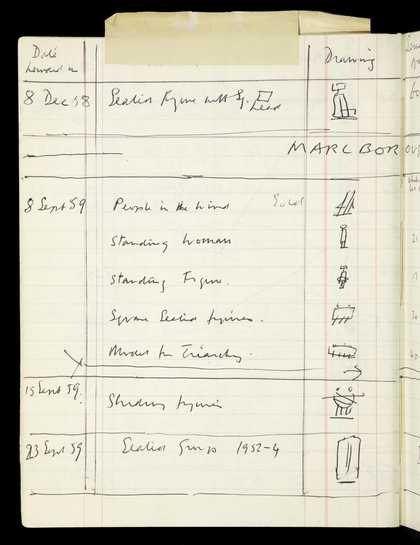 Date
Drawing
8 Dec 58 Seated figure with Sq. Head
MARLBOROU
8 Sept 59 People in the Wind Sold
Standing Woman
Standing Figure.
Square Seated figures.
Model for Triarchy.
15 Sept 59. Striding figures
23 Sept 59 Seated Group 1952-4